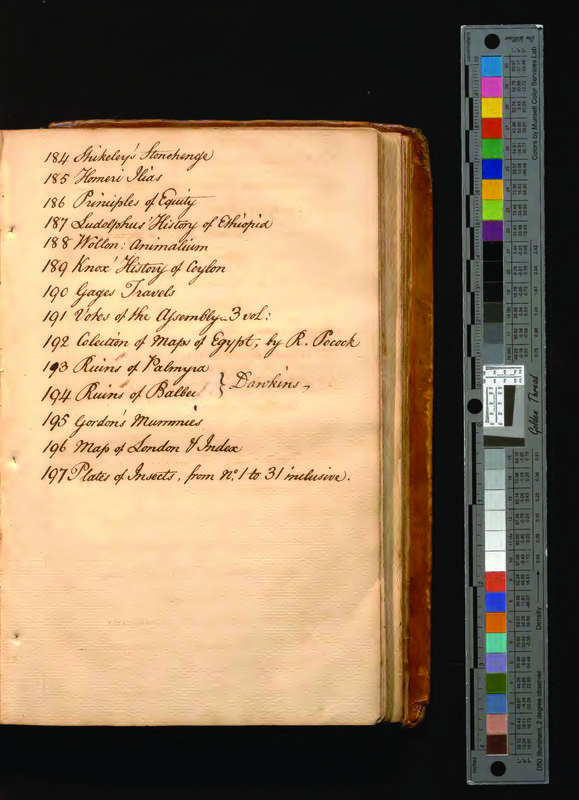 184 Stukeley's Stonehenge
185 Homeri Ilias
186 Principles of Equity
187 Ludolphus' History of Ethiopia
188 Wotton: Animalium
189 Knox' History of Ceylon
190 Gages Travels
191 Votes of the Assembly_3 vol:
192 Colection of Maps of Egypt, by R. Pocock
193 Ruins of Palmyra
194 Ruins of Balbec } Dawkins
195 Gordon's Mummies
196 Map of London & Index
197 Plates of Insects, from No. 1 to 31 inclusive.
Colors by Munsell Color Services Lab
Golden Thread
Density
D50 Illuminant, 2 degree observer